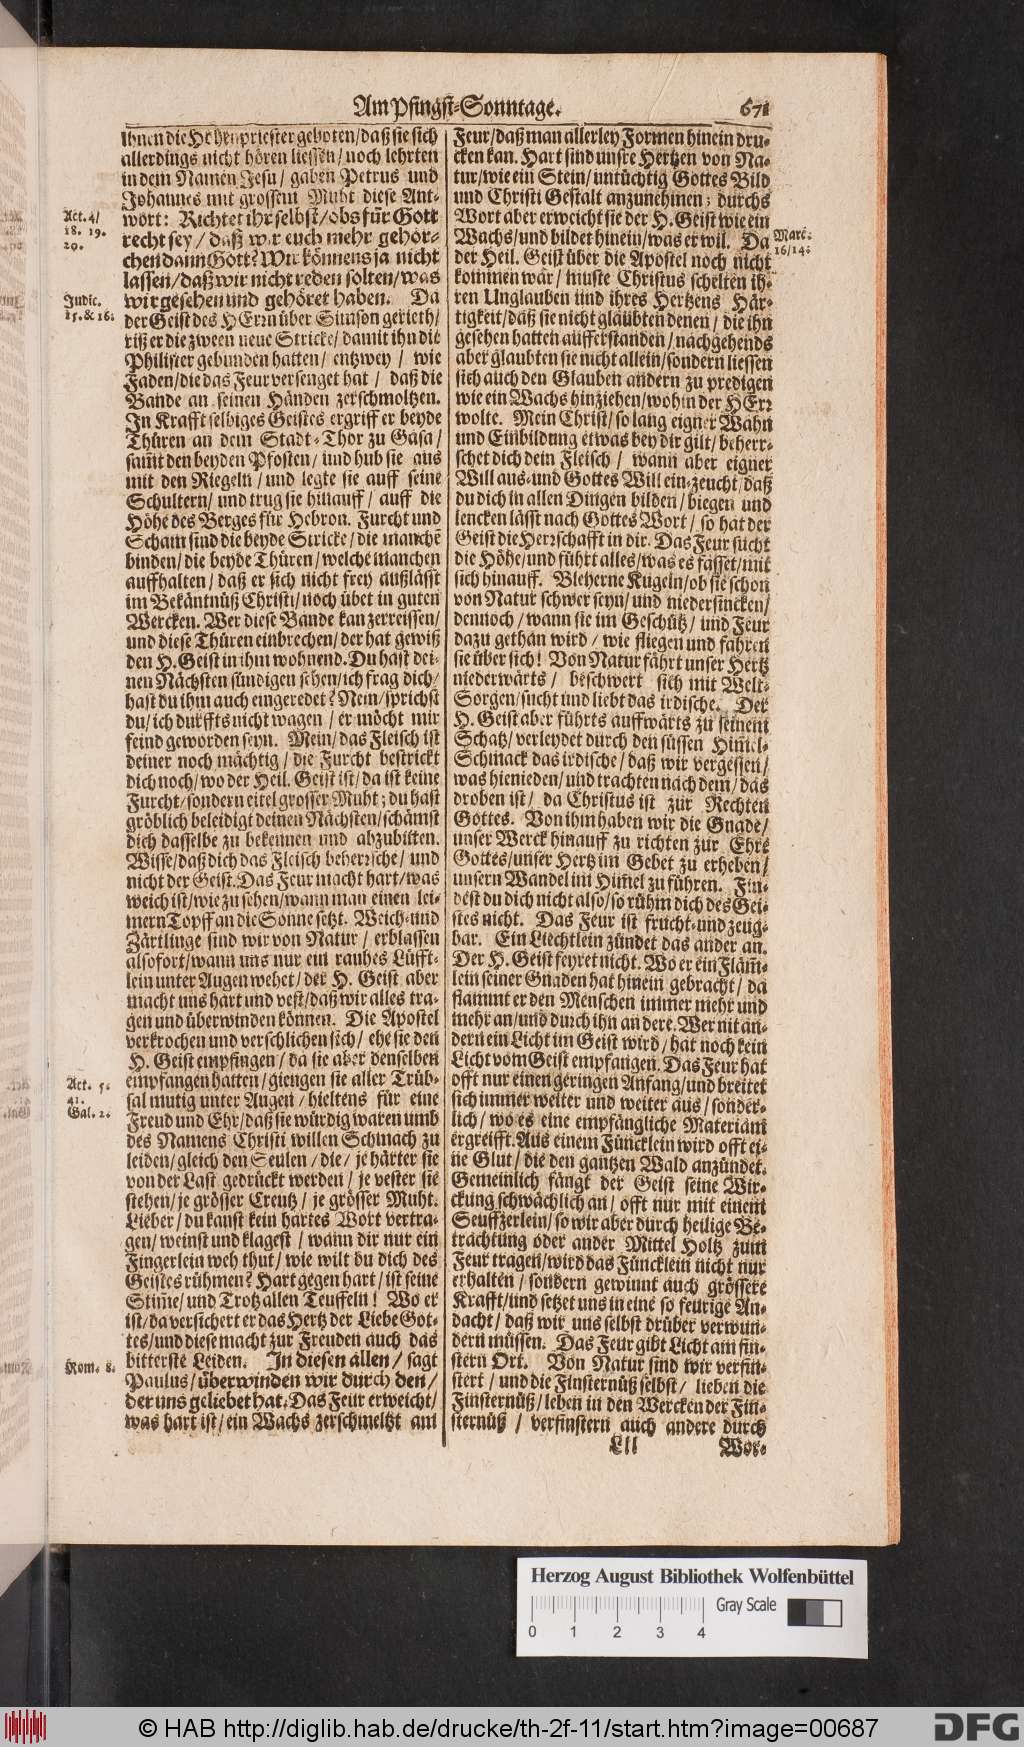 Am Pfingst-Sonntage. 671
Ihnen die Hohenpriester geboten/ daß sie sich
allerdings nicht hören liessen/ noch lehrten
in dem Namen Jesu/ gaben Petrus und
Johannes mit grossem Muht diese Ant-
wort: Richtet ihr selbst/ obs für Gott
recht sey/ daß wir euch mehr gehor-
chen dann Gott? Wir könnens ja nicht
lassen/ daß wir nicht reden solten/ was
wir gesehen und gehöret haben. Da
der Geist des HErrn über Simson gerieth/
riß er die zween neue Stricke/ damit ihn die
Philister gebunden hatten/ entzwey/ wie
Faden/ die das Feur versenget hat/ daß die
Bande an seinen Händen zerschmoltzen.
In Krafft selbiges Geistes ergriff er beyde
Thüren an dem Stadt-Thor zu Gasa/
sam̃t den beyden Pfosten/ und hub sie aus
mit den Riegeln/ und legte sie auff seine
Schultern/ und trug sie hinauff/ auff die
Höhe des Berges für Hebron. Furcht und
Scham sind die beyde Stricke/ die manchẽ
binden/ die beyde Thüren/ welche manchen
auffhalten/ daß er sich nicht frey außlässt
im Bekäntnüß Christi/ noch übet in guten
Wercken. Wer diese Bande kan zerreissen/
und diese Thüren einbrechen/ der hat gewiß
den H. Geist in ihm wohnend. Du hast dei-
nen Nächsten sündigen sehen/ ich frag dich/
hast du ihm auch eingeredet? Nein/ sprichst
du/ ich durffts nicht wagen/ er möcht mir
feind geworden seyn. Mein/ das Fleisch ist
deiner noch mächtig/ die Furcht bestrickt
dich noch/ wo der Heil. Geist ist/ da ist keine
Furcht/ sondern eitel grosser Muht; du hast
gröblich beleidigt deinen Nächsten/ schämst
dich dasselbe zu bekennen und abzubitten.
Wisse/ daß dich das Fleisch beherrsche/ und
nicht der Geist. Das Feur macht hart/ was
weich ist/ wie zu sehen/ wann man einen lei-
mern Topff an die Sonne setzt. Weich- und
Zärtlinge sind wir von Natur/ erblassen
alsofort/ wann uns nur ein rauhes Lüfft-
lein unter Augen wehet/ der H. Geist aber
macht uns hart und vest/ daß wir alles tra-
gen und überwinden können. Die Apostel
verkrochen und verschlichen sich/ ehe sie den
H. Geist empfingen/ da sie aber denselben
empfangen hatten/ giengen sie aller Trüb-
sal mutig unter Augen/ hieltens für eine
Freud und Ehr/ daß sie würdig waren umb
des Namens Christi willen Schmach zu
leiden/ gleich den Seulen/ die/ je härter sie
von der Last gedrückt werden/ je vester sie
stehen/ je grösser Creutz/ je grösser Muht.
Lieber/ du kanst kein hartes Wort vertra-
gen/ weinst und klagest/ wann dir nur ein
Fingerlein weh thut/ wie wilt du dich des
Geistes rühmen? Hart gegen hart/ ist seine
Stim̃e/ und Trotz allen Teuffeln! Wo er
ist/ da versichert er das Hertz der Liebe Got-
tes/ und diese macht zur Freuden auch das
bitterste Leiden. In diesen allen/ sagt
Paulus/ überwinden wir durch den/
der uns geliebet hat. Das Feur erweicht/
was hart ist/ ein Wachs zerschmeltzt am
Act. 4/
18. 19.
20.
Judic.
15. & 16.
Act. 5.
41.
Gal. 2.
Rom. 8.
Feur/ daß man allerley Formen hinein dru-
cken kan. Hart sind unsre Hertzen von Na-
tur/ wie ein Stein/ untüchtig Gottes Bild
und Christi Gestalt anzunehmen; durchs
Wort aber erweicht sie der H. Geist wie ein
Wachs/ und bildet hinein/ was er wil. Da
der Heil. Geist über die Apostel noch nicht
kommen wär/ muste Christus schelten ih-
ren Unglauben und ihres Hertzens Här-
tigkeit/ daß sie nicht gläubten denen/ die ihn
gesehen hatten aufferstanden/ nachgehends
aber gläubten sie nicht allein/ sondern liessen
sich auch den Glauben andern zu predigen
wie ein Wachs hinziehen/ wohin der HErr
wolte. Mein Christ/ so lang eigner Wahn
und Einbildung etwas bey dir gilt/ beherr-
schet dich dein Fleisch/ wann aber eigner
Will aus- und Gottes Will ein-zeucht/ daß
du dich in allen Dingen bilden/ biegen und
lencken lässt nach Gottes Wort/ so hat der
Geist die Herrschafft in dir. Das Feur sucht
die Höhe/ und führt alles/ was es fasset/ mit
sich hinauff. Bleyerne Kugeln/ ob sie schon
von Natur schwer seyn/ und niedersincken/
dennoch/ wann sie im Geschütz/ und Feur
dazu gethan wird/ wie fliegen und fahren
sie über sich! Von Natur fährt unser Hertz
niederwärts/ beschwert sich mit Welt-
Sorgen/ sucht und liebt das irdische. Der
H. Geist aber führts auffwärts zu seinem
Schatz/ verleydet durch den süssen Him̃el-
Schmack das irdische/ daß wir vergessen/
was hienieden/ und trachten nach dem/ das
droben ist/ da Christus ist zur Rechten
Gottes. Von ihm haben wir die Gnade/
unser Werck hinauff zu richten zur Ehre
Gottes/ unser Hertz im Gebet zu erheben/
unsern Wandel im Him̃el zu führen. Fin-
dest du dich nicht also/ so rühm dich des Gei-
stes nicht. Das Feur ist frucht- und zeug-
bar. Ein Liechtlein zündet das ander an.
Der H. Geist feyret nicht. Wo er ein Flam̃-
lein seiner Gnaden hat hinein gebracht/ da
flammt er den Menschen immer mehr und
mehr an/ und durch ihn andere. Wer nit an-
dern ein Licht im Geist wird/ hat noch kein
Licht vom Geist empfangen. Das Feur hat
offt nur einen geringen Anfang/ und breitet
sich immer weiter und weiter aus/ sonder-
lich/ wo es eine empfängliche Materiam
ergreifft. Aus einem Füncklein wird offt ei-
ne Glut/ die den gantzen Wald anzündet.
Gemeinlich fängt der Geist seine Wir-
ckung schwächlich an/ offt nur mit einem
Seuffzerlein/ so wir aber durch heilige Be-
trachtung oder ander Mittel Holtz zum
Feur tragen/ wird das Füncklein nicht nur
erhalten/ sondern gewinnt auch grössere
Krafft/ und setzet uns in eine so feurige An-
dacht/ daß wir uns selbst drüber verwun-
dern müssen. Das Feur gibt Licht am fin-
stern Ort. Von Natur sind wir verfin-
stert/ und die Finsternüß selbst/ lieben die
Finsternüß/ leben in den Wercken der Fin-
sternüß/ verfinstern auch andere durch
Marc.
16/14.
Lll Wor-
Herzog August Bibliothek Wolfenbüttel
Gray Scale
0 1 2 3 4
© HAB http://diglib.hab.de/drucke/th-2f-11/start.htm?image=00687
DFG